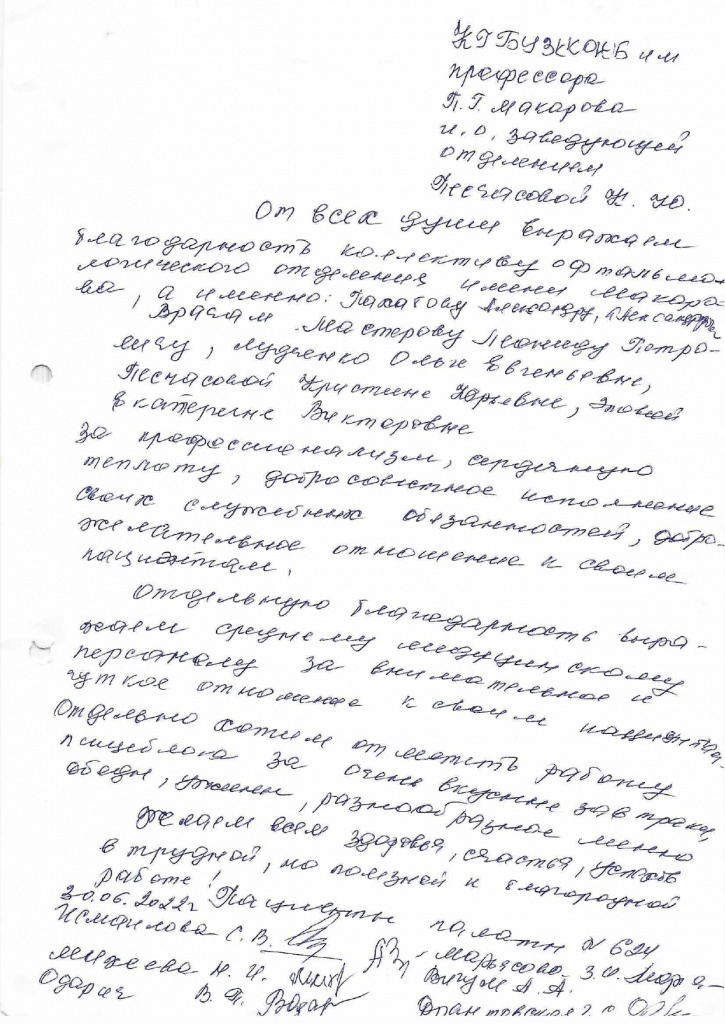 КГБУЗККОКБ им
профессора
П.Г. Макарова
и.о. заведующей
отделением
Песчасовой К. Ю.
От всех души выражаем
благодарность коллективу офтальмо-
логического отделения имени Макаро-
ва, а именно: Александру Александрови
Врачам Мастерову Леониду Петро-
вичу, Ольге Евгеньевне,
Песчасовой Кристине Юрьевне, Эповой
Екатерине Викторовне
за профессионализм, сердечную
теплоту, добросовестное исполнение
своих служебных обязанностей, добро-
желательное отношение к своим
пациентам.
Отдельную благодарность выра-
жаем среднему медицинскому
персоналу за внимательное и
чуткое отношение к своим пациентам
Отдельно хотим отметить работу
пищеблока за очень вкусные завтраки,
обеды, ужины, разнообразное меню
Желаем всем здоровья, счастья, успехов
в трудной, но полезной и благородной
работе!
30.06.2022г Пациенты палаты N 624
Исмаилова С. В. Марьясова З.И.
Михеева Н. И. А. А.
Одарич В. П.